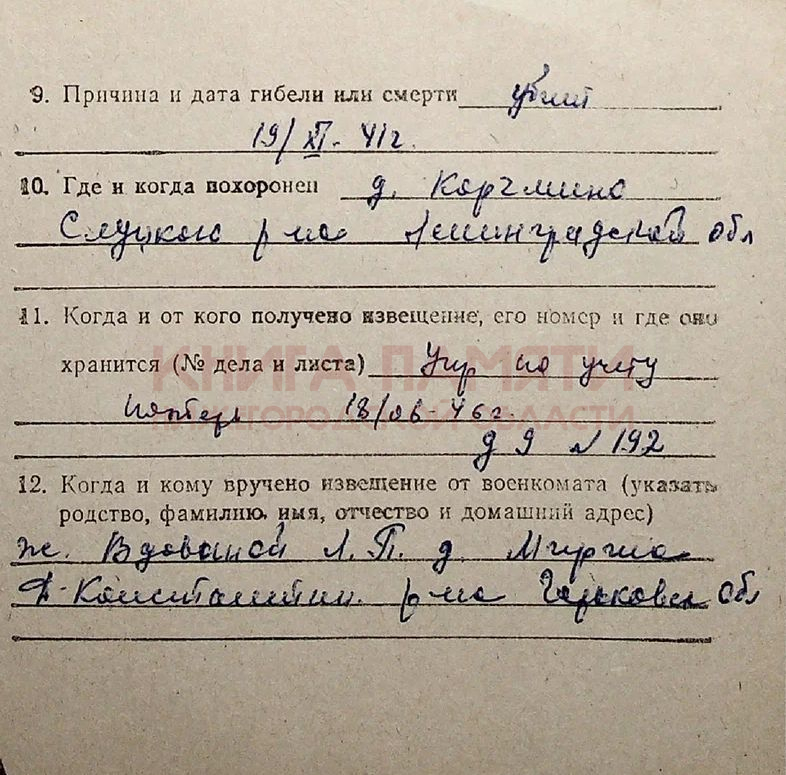 9. Причина и дата гибели или смерти убит
19/XI-41г.
10. Где и когда похоронен д. Корчмино
Слуцкого р-на Ленинградской обл
11. Когда и от кого получено извещение, его номер и где оно
хранится (№ дела и листа) Упр по учету
КНИГА ПАМЯТИ
потерь 18/06-46г.
НИЖЕГОРОДСКОЙ ОБЛАСТИ
д 9 л 192
12. Когда и кому вручено извещение от военкомата (указать
родство, фамилию, имя, отчество и домашний адрес)
ж. Вдовиной Л. П. д.
Д-Константин. р-на Горьковск обл